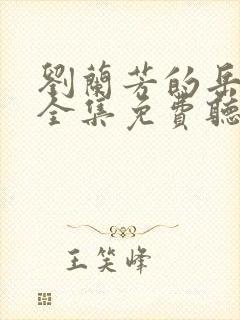 劉蘭芳的岳
全集免費聽
王笑峰